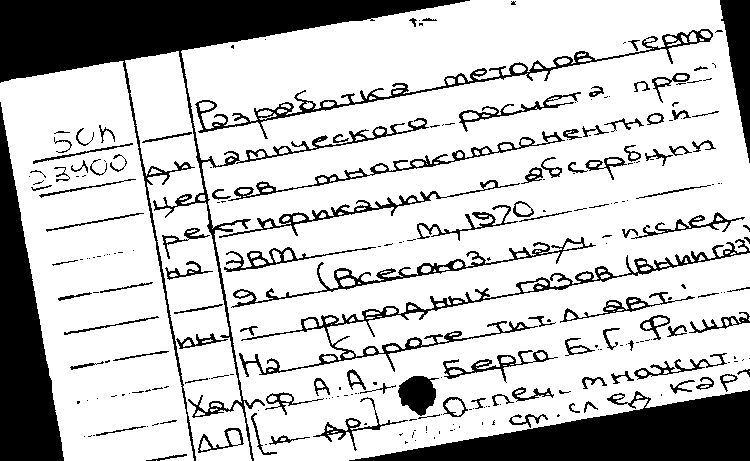 5Un
23400
Разработка методов термо-
динамического расчета про-
цессов многокомпонентной
ректификации и абсорбции
на ЭВМ. М., 1970.
9 с. (Всесоюз. науч.-исслед.
ин-т природных газов (ВНИИГАЗ)
На обороте тит. л. авт.:
Халиф А.А., Берго Б.Г., Фишма
Л.Л [и др.]. Отпеч. множит.
см. след. карт